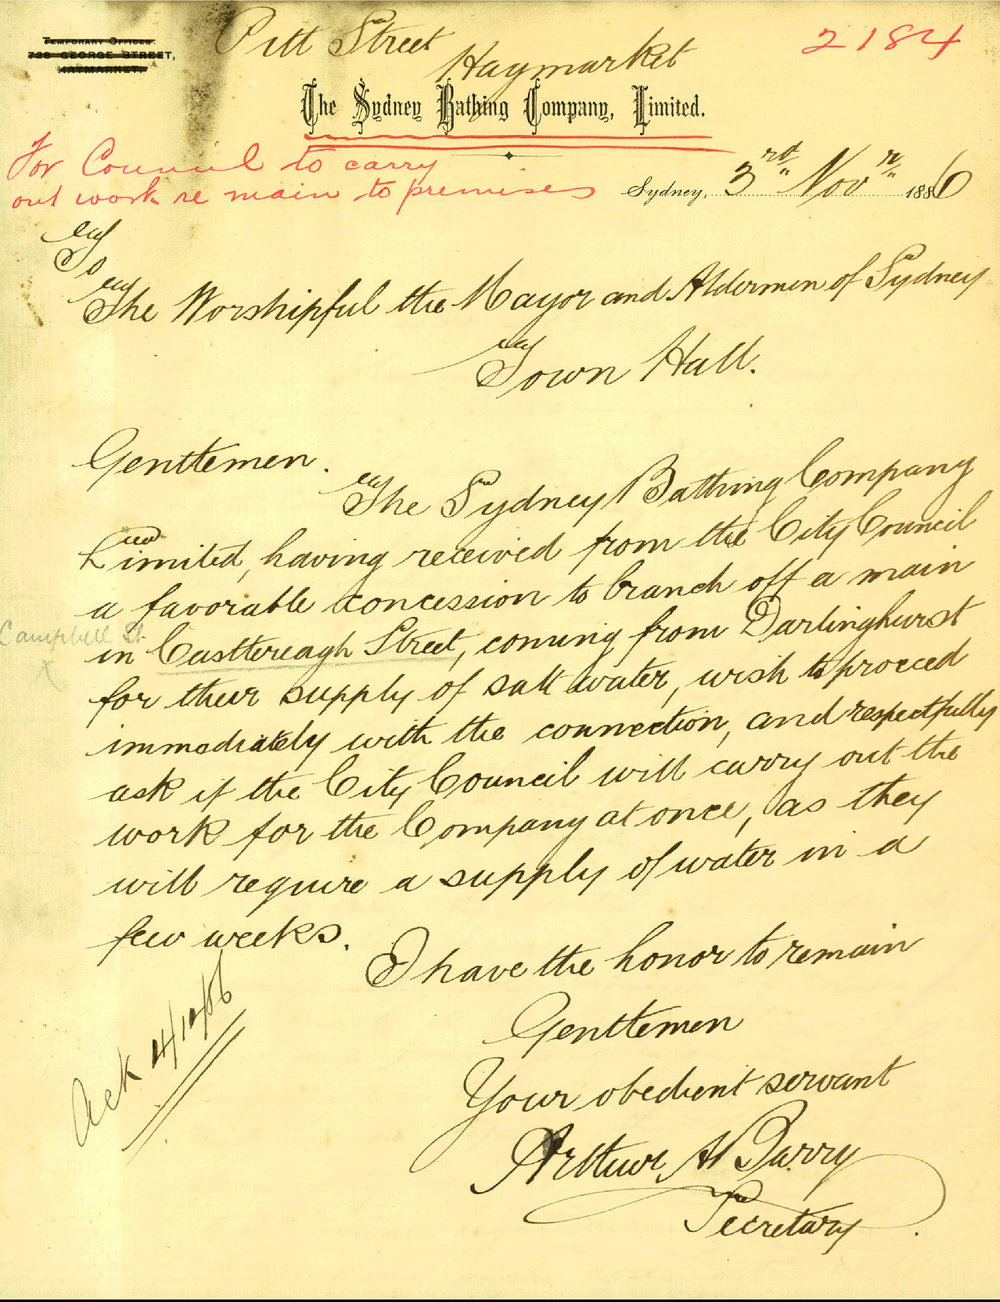 TEMPORARY OFFICES
728 GEORGE STREET,
HAYMARKET.
Pitt Street
Haymarket
2184
The Sydney Bathing Company, Limited.
For Council to carry
out work re main to premises
Sydney, 3rd Novr 1886
To
The Worshipful the Mayor and Aldermen of Sydney
Town Hall.
Genttemen.
The Sydney Bathing Company
Limited, having received from the City Council
a favorable concession to branch off a main
Campbell St.
in Casttereagh Street, coming from Darlinghurst
X
for their supply of salt water, wish to proceed
immediately with the connection, and respectfully
ask if the City Council will carry out the
work for the Company at once, as they
will require a supply of water in a
few weeks.
I have the honor to remain
Genttemen
Your obedient servant
Arthur H Barry
Secretary.
Ack